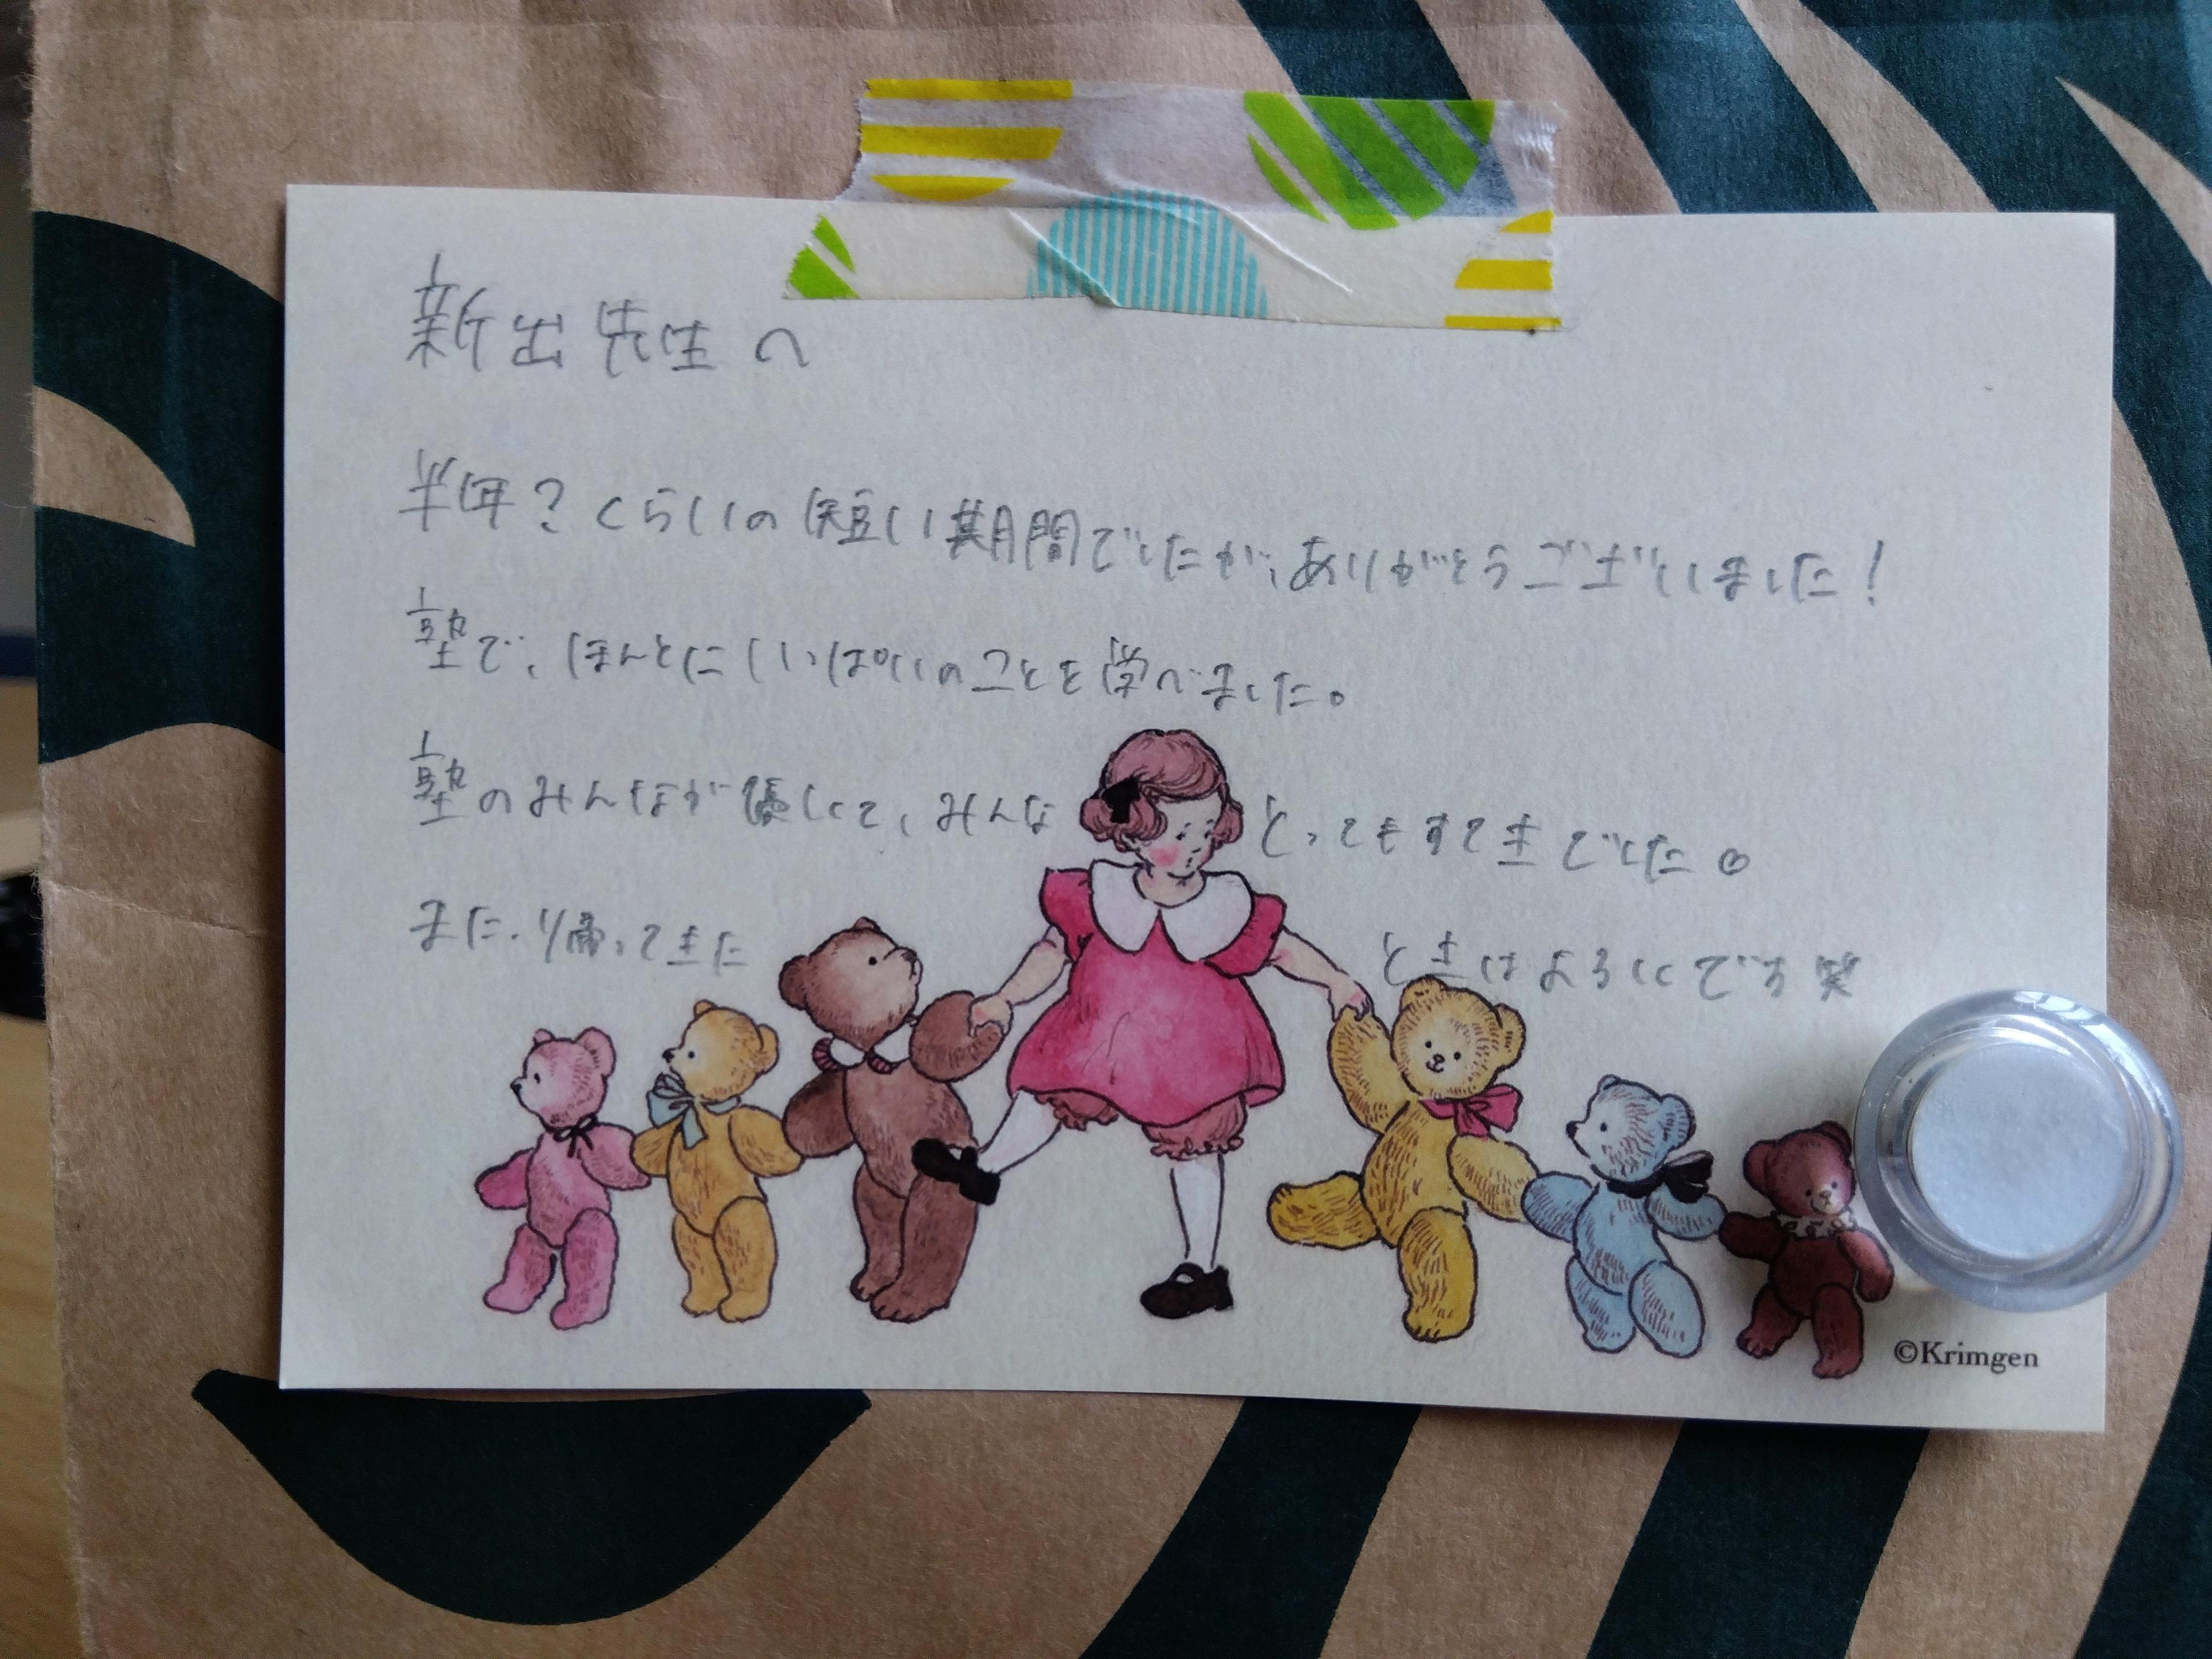 新出先生へ
半年?くらいの短い期間でしたが、ありがとうございました!
塾で、ほんとにいっぱいのことを学べました。
塾のみんなが優しくて、みんなとってもすてきでした。
また、帰ってきたときはよろしくです笑
©Krimgen